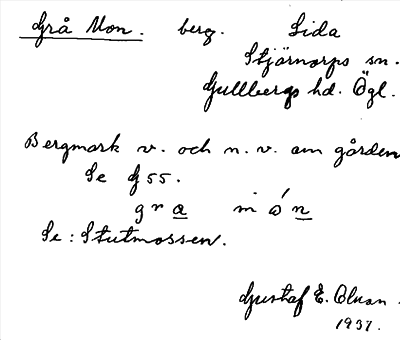 Grå Mon. berg. Lida
Stjärnorps sn.
Gullbergs hd. Ögl.
Bergmark v. och n. v. om gården
Se G 55.
gra món
Se: Stutmossen.
Gustaf E. Olson.
1937.